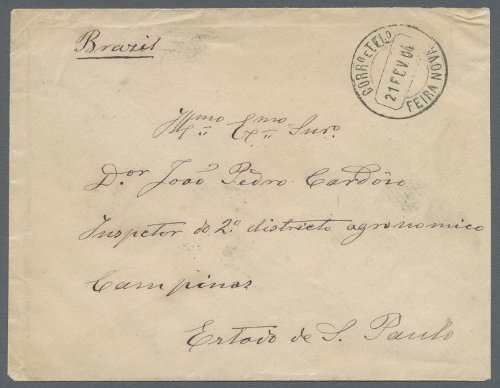 Brazil
CORRO E TELO
21 FEV. 04
FEIRA NOVA
Illmo Exmo Snr.
Dor João Pedro Cardoso
Inspetor do 2º districto agronomico
Campinas
Estado de S. Paulo